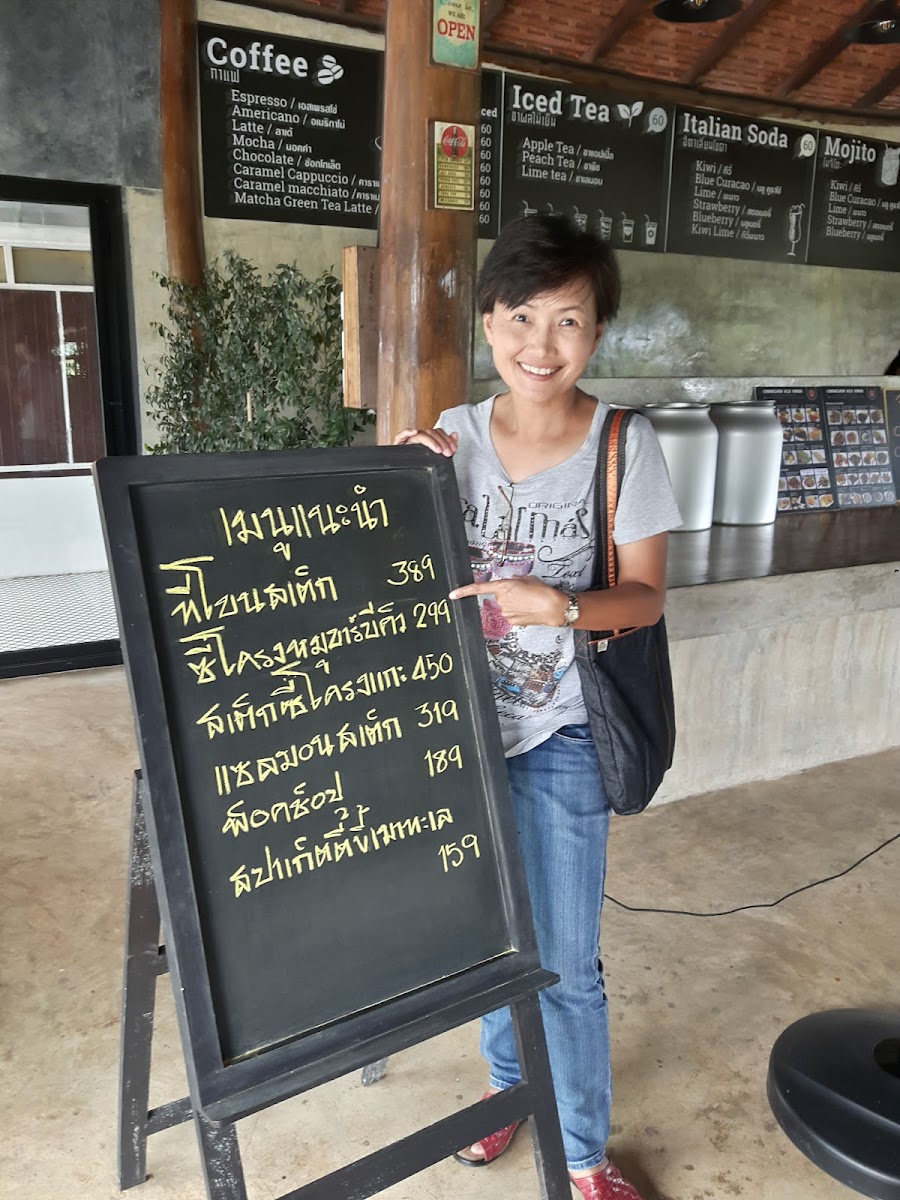 Come in
WE ARE
OPEN
Coffee
กาแฟ
Espresso / เอสเพรสโซ่
Americano / อเมริกาโน่
Latte / ลาเต้
Mocha / มอคค่า
Chocolate / ช็อกโกเล็ต
Caramel Cappuccio / คารา
Caramel macchiato / คาราเม
Matcha Green Tea Latte /
Coca-Cola
Iced
60
60
60
60
60
60
60
60
Iced Tea
60
ชาผลไม้เย็น
Apple Tea / ชาแอปเปิ้ล
Peach Tea / ชาพีช
Lime tea / ชาเลมอน
Italian Soda
60
อิตาเลี่ยนโซดา
Kiwi / กีวี่
Blue Curacao / บลู คูราโซ่
Lime / มะนาว
Strawberry / สตอเบอรี่
Blueberry / บลูเบอรี่
Kiwi Lime / กีวี่มะนาว
Mojito
โมจิโต้
Kiwi / กีวี่
Blue Curacao / บลู คูรา
Lime / มะนาว
Strawberry / สตอเบอ
Blueberry / บลูเบอรี่
ORIGINA
เมนูแนะนำ
ทีโบนสเต็ก 389
ซี่โครงหมูบาร์บีคิว 299
สเต็กซี่โครงแกะ 450
แซลมอนสเต็ก 319
พ็อคช็อป 189
สปาเก็ตตี้ขี้เมาทะเล
159